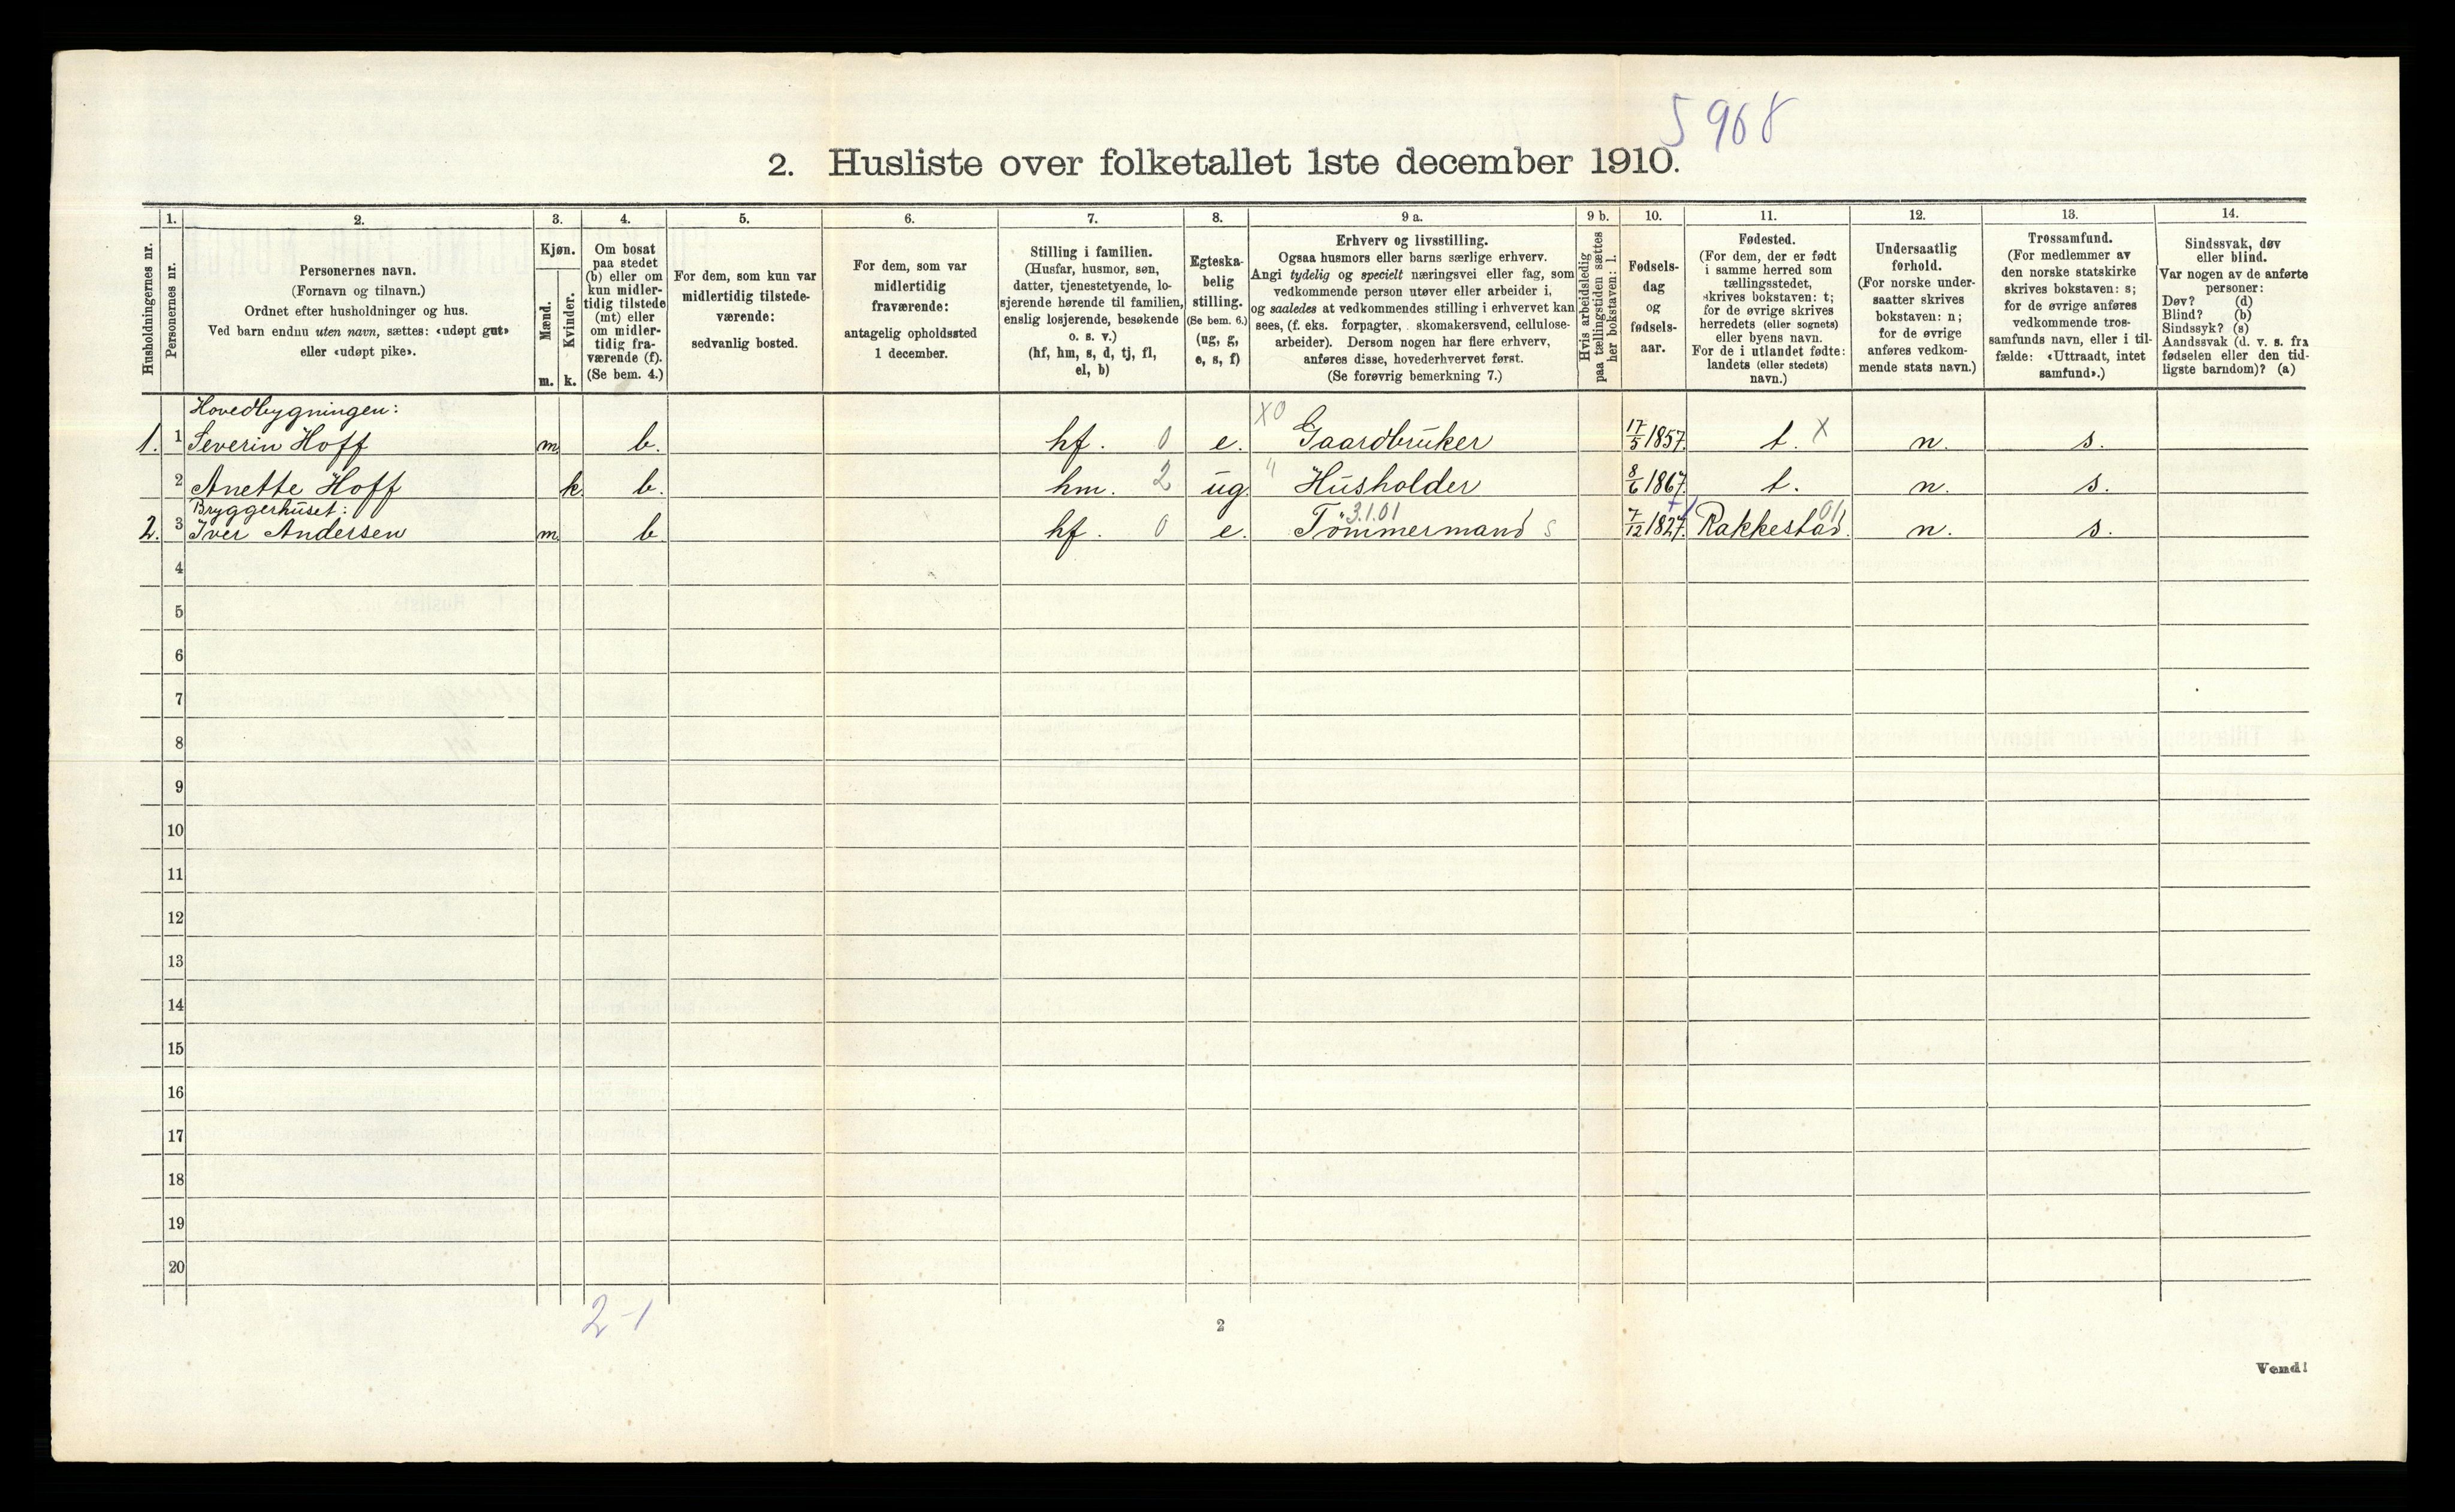 5968
2. Husliste over folketallet 1ste december 1910.
Husholdningernes nr.
1.
Personernes nr.
2.
Personernes navn.
(Fornavn og tilnavn.)
Ordnet efter husholdninger og hus.
Ved barn endnu uten navn, sættes: «udøpt gut»
eller «udøpt pike».
3.
Kjøn.
Mænd.
m.
Kvinder.
k.
4.
Om bosat
paa stedet
(b) eller om
kun midler-
tidig tilstede
(mt) eller
om midler-
tidig fra-
værende (f).
(Se bem. 4.)
5.
For dem, som kun var
midlertidig tilstede-
værende:
sedvanlig bosted.
6.
For dem, som var
midlertidig
fraværende:
antagelig opholdssted
1 december.
7.
Stilling i familien.
(Husfar, husmor, søn,
datter, tjenestetyende, lo-
sjerende hørende til familien,
enslig losjerende, besøkende
o. s. v.)
(hf, hm, s, d, tj, fl,
el, b)
8.
Egteska-
belig
stilling.
(Se bem. 6.)
(ug, g,
e, s, f)
9 a.
Erhverv og livsstilling.
Ogsaa husmors eller barns særlige erhverv.
Angi tydelig og specielt næringsvei eller fag, som
vedkommende person utøver eller arbeider i,
og saaledes at vedkommendes stilling i erhvervet kan
sees, (f. eks. forpagter, skomakersvend, cellulose-
arbeider). Dersom nogen har flere erhverv,
anføres disse, hovederhvervet først.
(Se forøvrig bemerkning 7.)
9 b.
Hvis arbeidsledig
paa tællingstiden sættes
her bokstaven: l.
10.
Fødsels-
dag
og
fødsels-
aar.
11.
Fødested.
(For dem, der er født
i samme herred som
tællingsstedet,
skrives bokstaven: t;
for de øvrige skrives
herredets (eller sognets)
eller byens navn.
For de i utlandet fødte:
landets (eller stedets)
navn.)
12.
Undersaatlig
forhold.
(For norske under-
saatter skrives
bokstaven: n;
for de øvrige
anføres vedkom-
mende stats navn.)
13.
Trossamfund.
(For medlemmer av
den norske statskirke
skrives bokstaven: s;
for de øvrige anføres
vedkommende tros-
samfunds navn, eller i til-
fælde: «Uttraadt, intet
samfund».)
14.
Sindssvak, døv
eller blind.
Var nogen av de anførte
personer:
Døv? (d)
Blind? (b)
Sindssyk? (s)
Aandssvak (d. v. s. fra
fødselen eller den tid-
ligste barndom)? (a)
Hovedbygningen:
1. 1 Severin Hoff m b. hf. 0 e. X0 Gaardbruker 17/5 1857. t. X n. s.
2 Anette Hoff k b. hm. 2 ug " Husholder 8/6 1867. t. n. s.
Bryggerhuset:
2. 3 Iver Andersen m b hf. 0 e. 3.1.01 Tømmermand s 7/12 1827. Rakkestad. 01 n. s.
4
5
6
7
8
9
10
11
12
13
14
15
16
17
18
19
20
2-1
2
Vend!